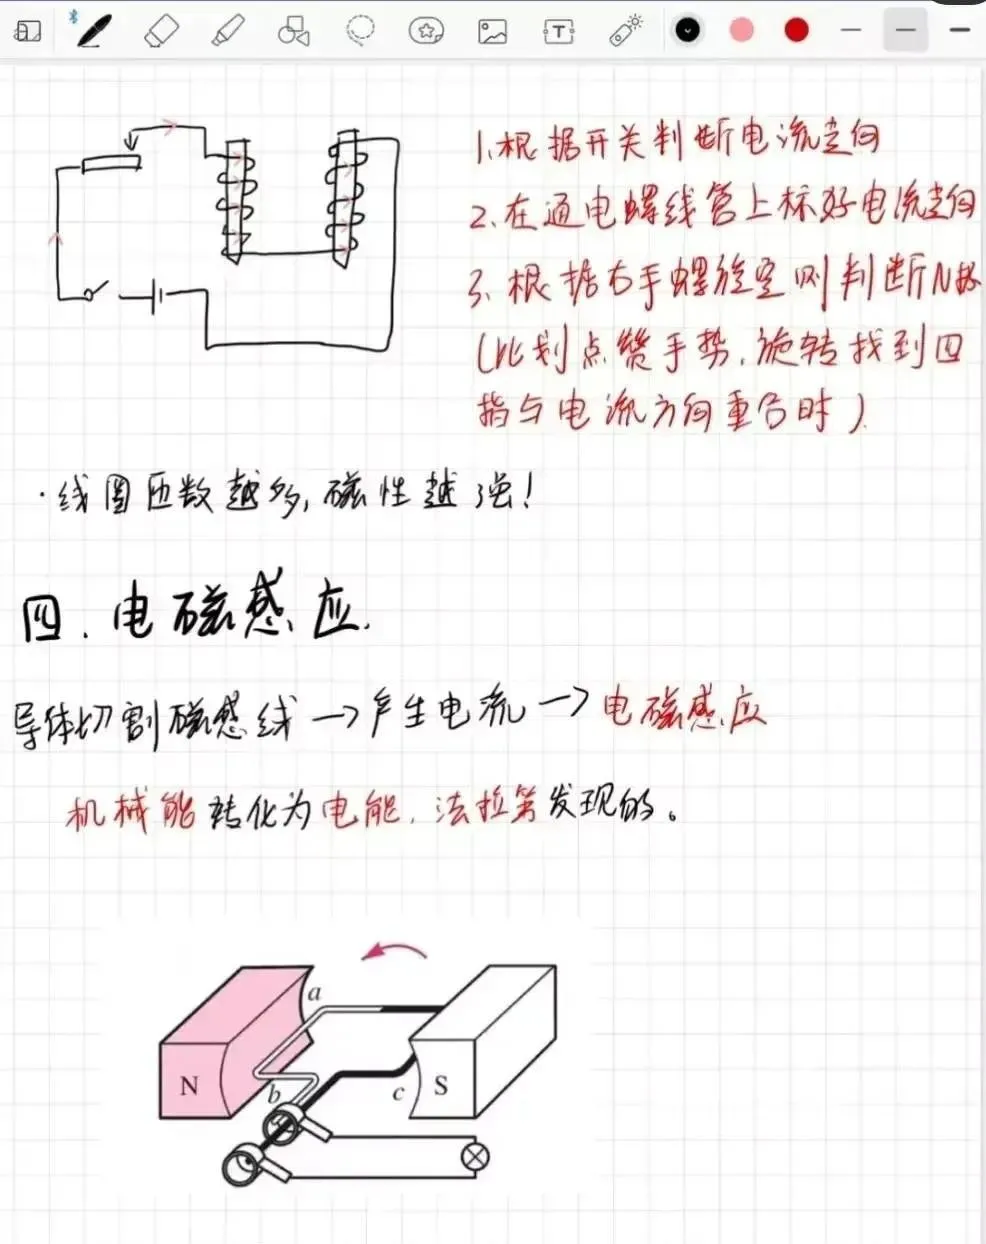 T
1.根据开关判断电流走向
2.在通电螺线管上标好电流走向
3.根据右手螺旋定则判断N极
(比划点赞手势,旋转找到四
指与电流方向重合时)
·线圈匝数越多,磁性越强!
四.电磁感应.
导体切割磁感线→产生电流→电磁感应
机械能转化为电能.法拉第发现的。
a
N
b
c
S